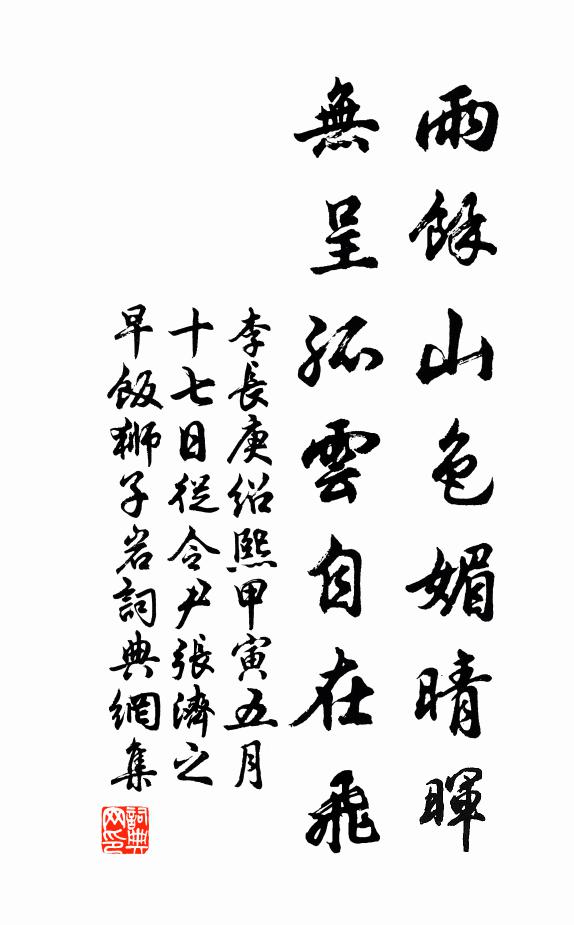 雨餘山色媚晴暉
無呈孤雲自在飛
李長庚紹熙甲寅五月
十七日從令尹張濟之
早飯獅子岩詞典網集
詞典网印